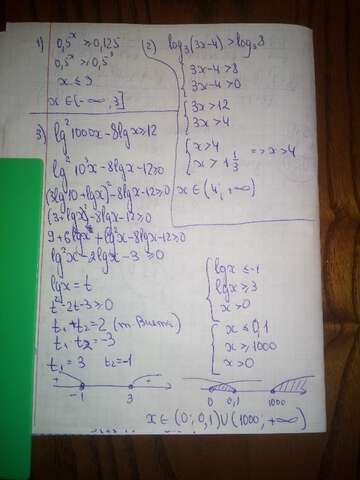 1) 0,5ˣ ≥ 0,125
0,5ˣ ≥ 0,5³
x ≤ 3
x ∈ (-∞; 3]
2) log₃(3x-4) > log₃8
{ 3x-4 > 8
3x-4 > 0
{ 3x > 12
3x > 4
{ x > 4
x > 1 1/3 => x > 4
x ∈ (4; +∞)
3) lg²1000x - 8lgx ≥ 12
lg²10³x - 8lgx - 12 ≥ 0
(3lg10 + lgx)² - 8lgx - 12 ≥ 0
(3 + lgx)² - 8lgx - 12 ≥ 0
9 + 6lgx + lg²x - 8lgx - 12 ≥ 0
lg²x - 2lgx - 3 ≥ 0
lgx = t
t² - 2t - 3 ≥ 0
t₁ + t₂ = 2 (т. Виета)
t₁ t₂ = -3
t₁ = 3 t₂ = -1
-1 3
{ lgx ≤ -1
lgx ≥ 3
x > 0
{ x ≤ 0,1
x ≥ 1000
x > 0
0 0,1 1000
x ∈ (0; 0,1) ∪ (1000; +∞)